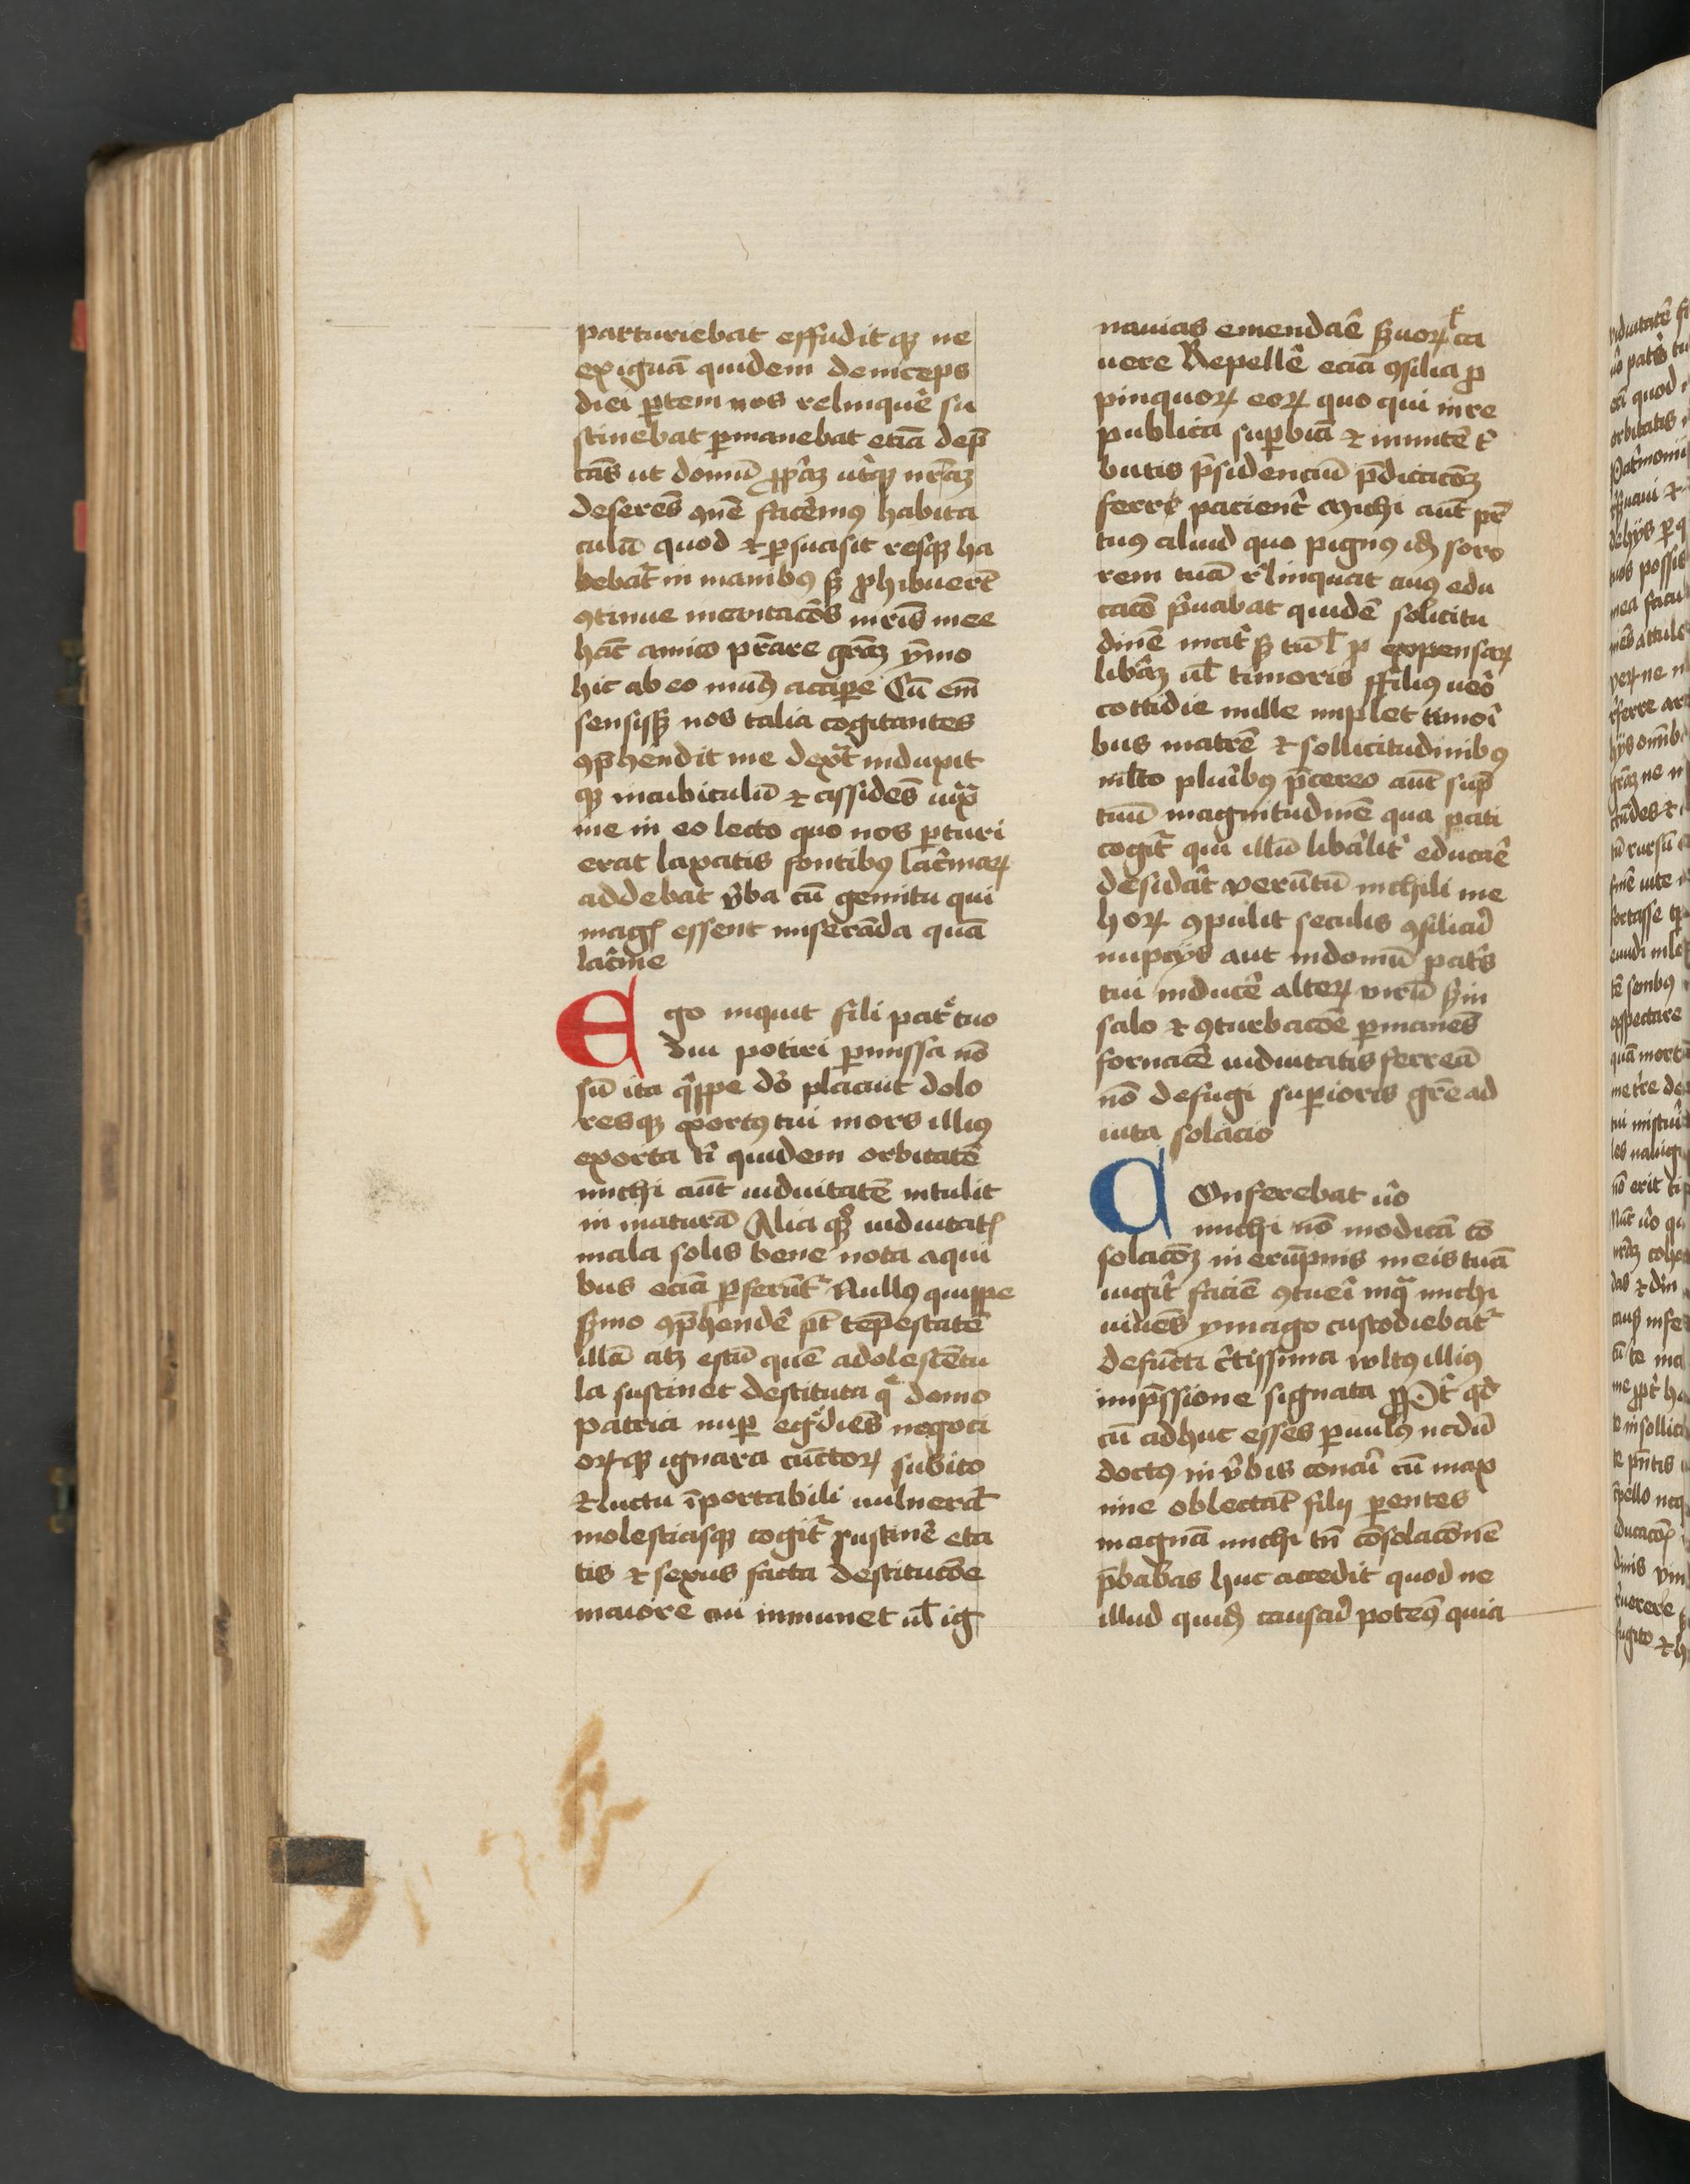 parturiebat effudit qꝫ ne
exiguā quidem deinceps
diei ꝑtem nos relinquē̂ su
stinebat ꝑmanebat etiā dep̄
cās ut domū ꝓpͣaꝫ utͥqꝫ nr̄aꝫ
deserēs ꝯuē facēmꝰ habita
culū quod ⁊ ꝑsuasit resqꝫ ha
bebat̄ in manibꝰ sꝫ ꝓhibuer̄t
ꝯtinue incantacōēs mr̄is mee
hāc amico p̄stare grāꝫ ymo
hic ab eo munꝰ acciꝑe Cū em̄
sensissꝫ nos talia cogitantes
ꝯp̄hendit me dext̄ induxit
qꝫ incubiculū ⁊ assidēs iuxͣ
me in eo lecto quo nos ꝑturi
erat laxatis fontibꝰ lacͥmaꝝ
addebat v̄ba cū gemitu qui
magꝭ essent miserāda quā
lacͥme
Ego inquit fili patͥ tuo
diu potiri ꝑmissa nō
sū ita qͥppe dō placuit dolo
resqꝫ ꝑortꝰ tui mors illiꝰ
exorta tͥ quidem orbitatē
michi aūt uiduitatē intulit
in maturā Alia qꝫ uiduitatꝭ
mala solis bene nota a qui
bus eciā ꝑferūt̄ Nullꝰ quippe
sermo ꝯp̄hendē̂ pt̄ tēpestatē
illā atꝫ estū quē adolescētu
la sustinet destituta qͣ domo
patria nuꝑ egͥdiēs negoci
oꝝqꝫ ignara cūctoꝝ subito
⁊ luctu īportabili uulnerat̄
molestiasqꝫ cogit̄ sustinē̂ eta
tis ⁊ sexus facta destitucōe
maiorē cui imminet ul̄ ig
nauias emendāē ẜuoꝝ ꝭ ca
uere Repellē̂ eciā ꝯsilia ꝓ
pinquoꝝ eoꝝ quo qui in re
publica suꝑbiā ⁊ inmitē tͥ
butis p̄sidenciū p̄dicacōꝫ
ferre pacient̄ Michi aūt pr̄
tuꝰ aliud quo pignꝰ idꝫ soro
rem tuā rͤlinquat cuiꝰ edu
cacō pͥuabat quidē solicitu
dinē matͥ sꝫ tū ꝉ ꝑ expensaꝝ
libāꝫ ul̄ timoris ffiliꝰ ueō
cottidie mille implet timoī
bus matrē ⁊ sollicitudinibꝰ
ml̄to pluīibꝰ p̄tereo aūt sup̄
tuū magnitudinē qua pati
cogit̄ qui illū libālit̄ educāē
desidāt veruntū nichil i me
hoꝝ ꝯpulit seculis ꝯsiliari
nupcijs aut indomū patͥs
tui inducē̂ alteꝝ virū sꝫ in
salo ⁊ ꝯturbacōe ꝑmanēs
fornacē uiduitatis ferreā
nō defugi suꝑioris grē ad
iuta solacio
COnferebat uͦo
michi nō modicā cō
solacōꝫ in erūpnis meis tuā
iugit̄ faciē ꝯtueī inqͣ michi
uiuēs ymago custodiebat̄
defuncti cͤtissima wltꝰ illiꝰ
imp̄ssione signata ꝓPt̄ qd̄
cū adhuc essēs ꝑuulꝰ nedū
doctꝰ in v̄bis concuī cū max
ime oblectāt filij ꝑentes
magnā michi tn̄ cōsolacōnē
p̄babas huc accedit quod ne
illud quidꝫ causari potēs quia